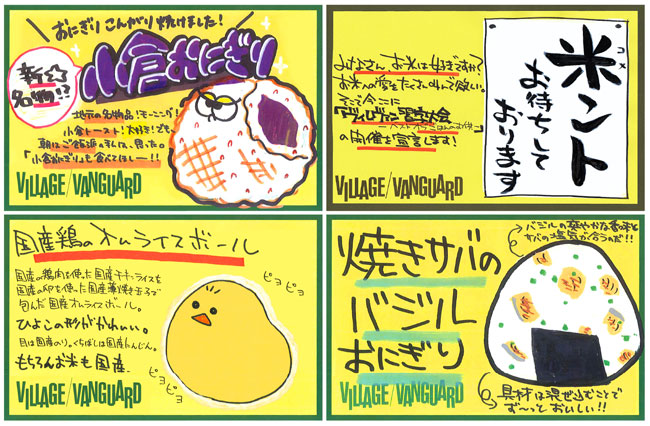 おにぎり こんがり 焼けました!
新☆
名物!?
小倉おにぎり
地元の名物品!モーニング!
小倉トースト!大好き!でも
朝はご飯派の 思った。
「小倉おにぎり」も食べてほしー!!
VILLAGE/VANGUARD
コメ
米ント
お待ちして
おります
みなさん、お米は好きですか?
お米への愛を 叫んで欲しい。
そこで今ここに
大会
の開催を宣言します!
VILLAGE/VANGUARD
国産鶏のオムライスボール
国産の鶏肉を使った国産チキンライスを
国産の卵を使った国産薄焼き玉子で
包んだ国産オムライスボール。
ひよこの形がかわいい。
目は国産のり。くちばしは国産にんじん。
もちろんお米も国産。
ピヨ
ピヨ
ピヨ
ピヨ
VILLAGE/VANGUARD
バジルの爽やかな香味と
サバの塩気が合うのだ!!
焼きサバの
バジル
おにぎり
具材は混ぜ込むことで
ず〜っとおいしい!!
VILLAGE/VANGUARD